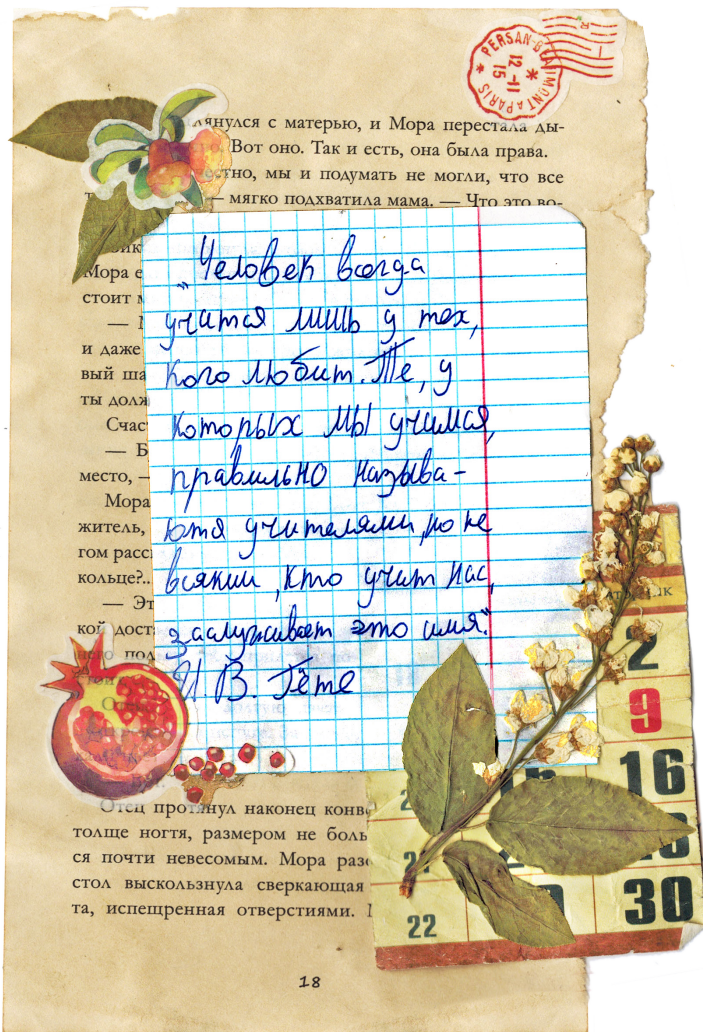 PERSAN-BEAUMONT A PARIS
12-11
15
лянулся с матерью, и Мора перестала ды-
Вот оно. Так и есть, она была права.
мы и подумать не могли, что все
— мягко подхватила мама. — Что это во-
Мора
стоит
и даже
ты
—
место, —
Мора
житель,
кольце?..
— Эт
„Человек всегда
учится лишь у тех,
кого любит. Те, у
которых мы учимся,
правильно называ-
ются учителями, но не
всякий, кто учит нас,
заслуживает это имя."
И. В. Гёте
2
9
16
30
22
Отец протянул наконец
толще ногтя, размером не
ся почти невесомым. Мора
стол выскользнула сверкающая
та, испещренная отверстиями.
18